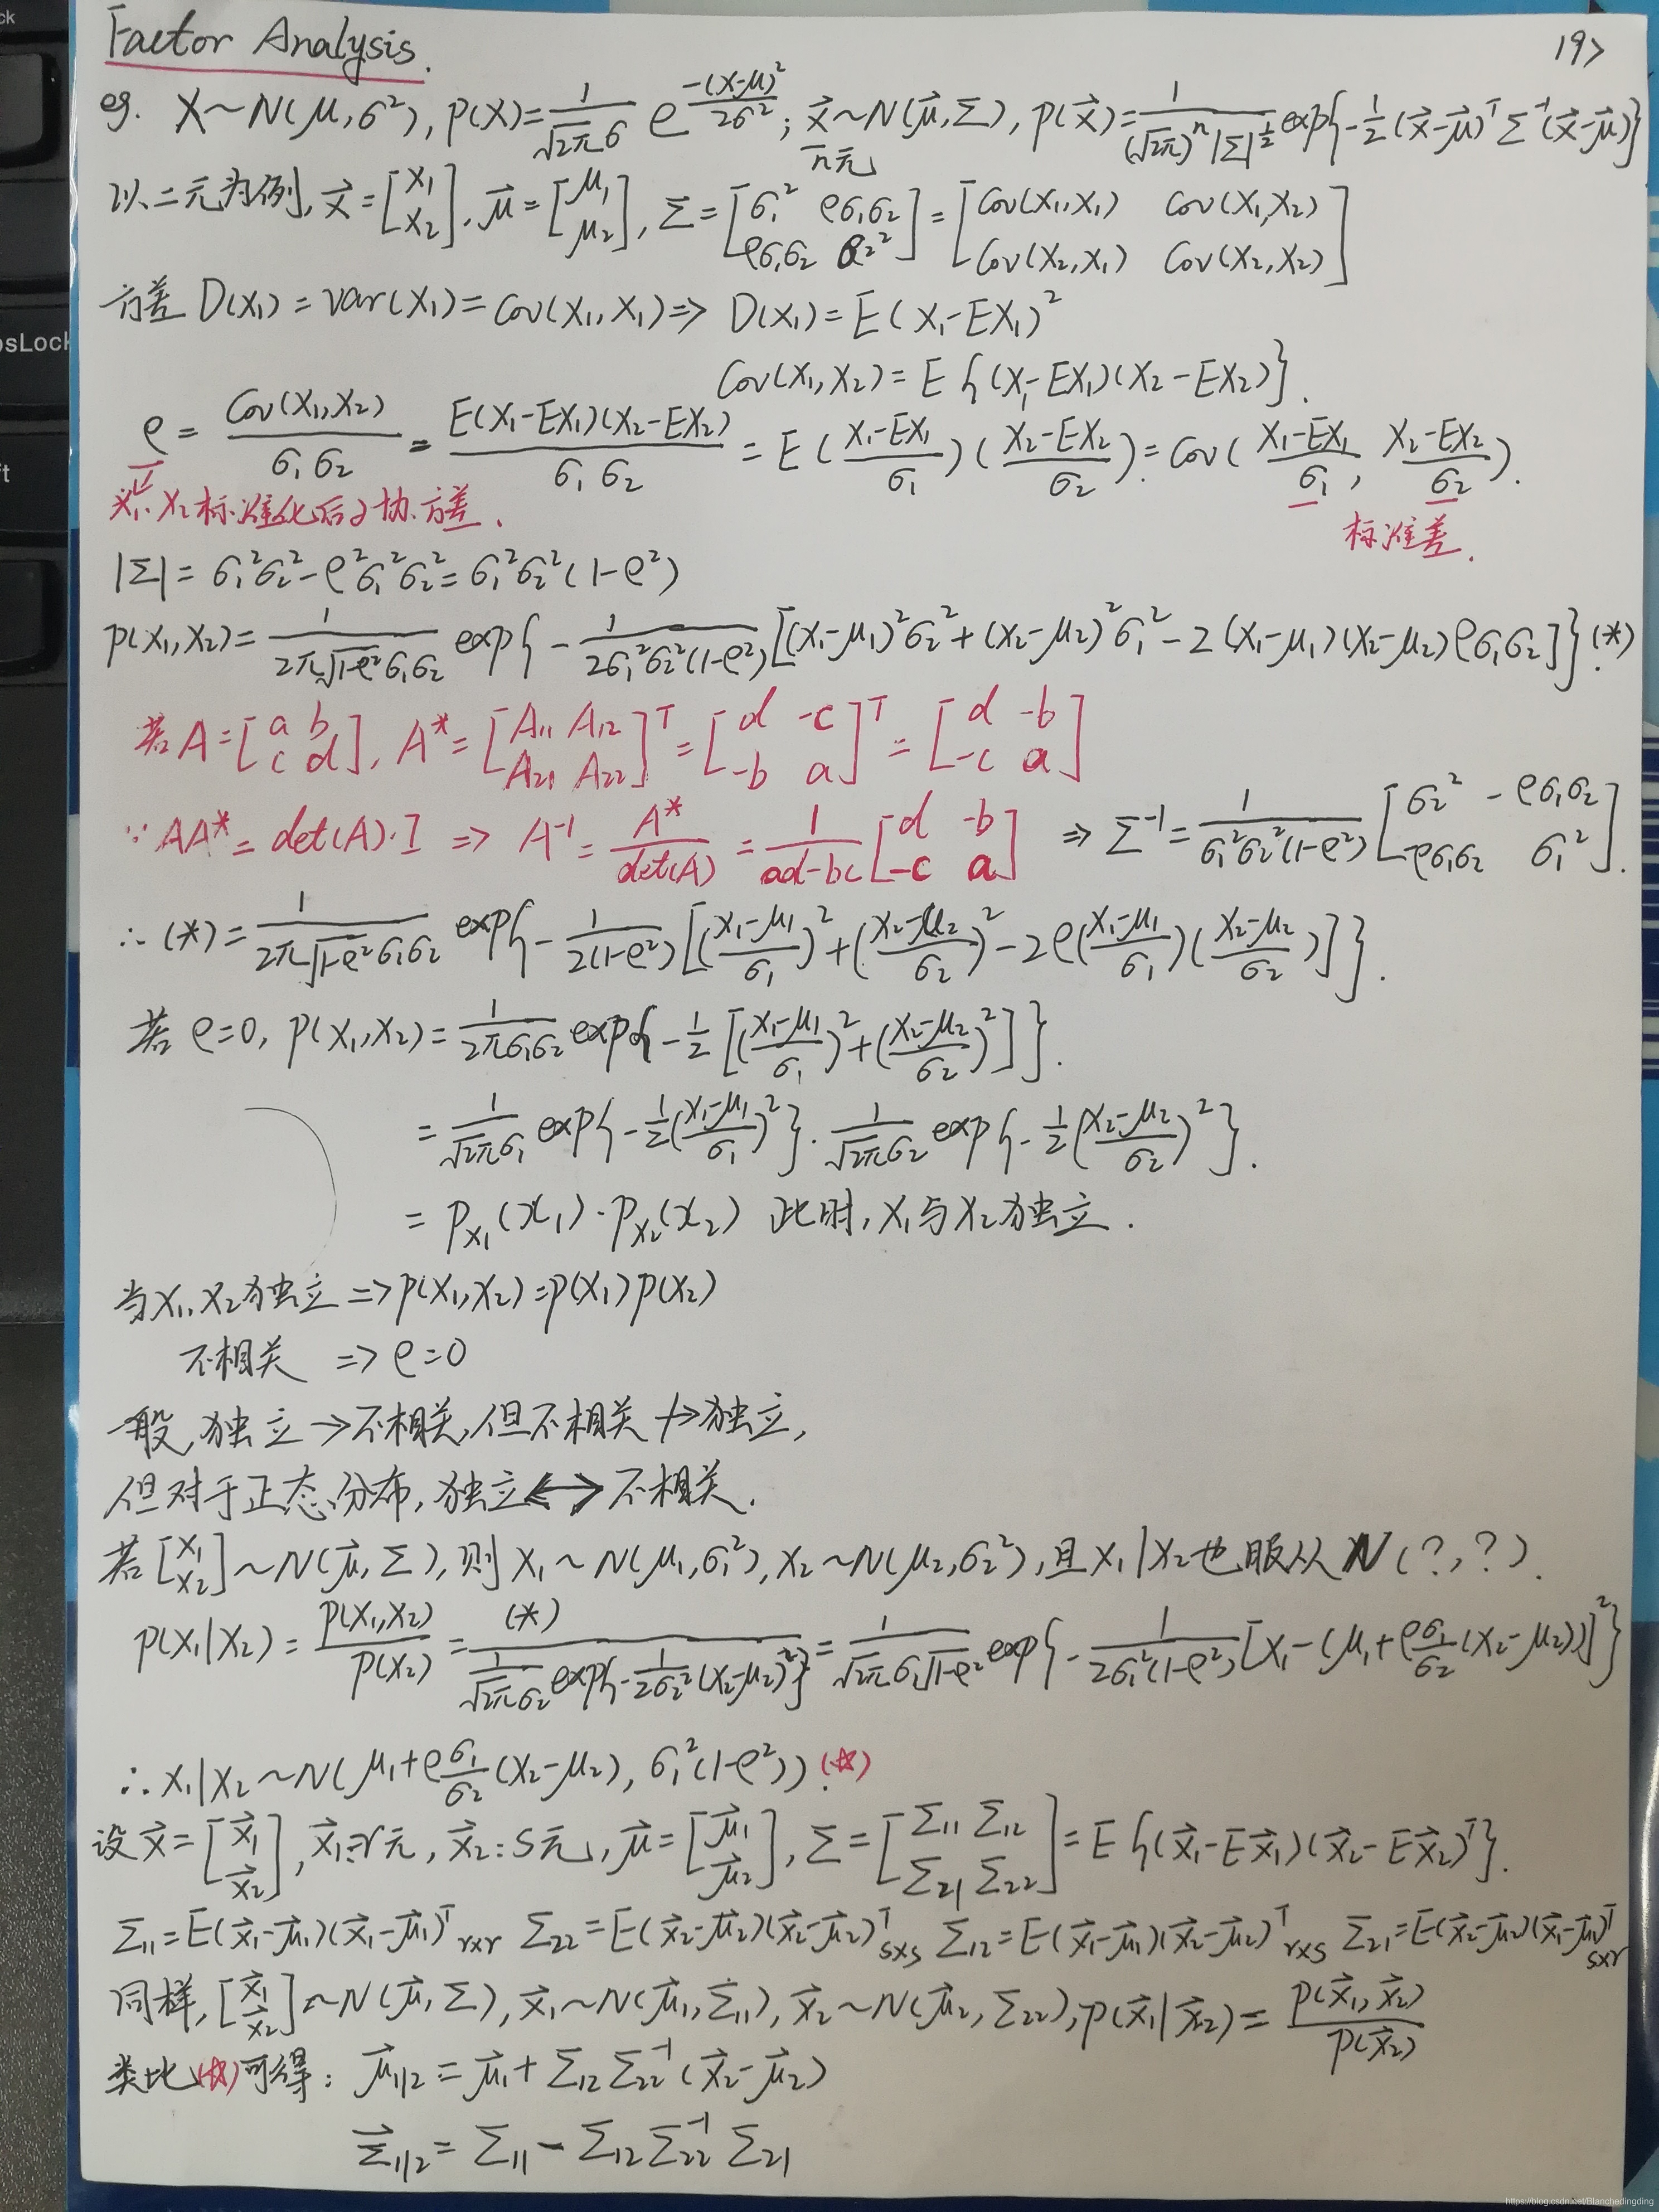 Factor Analysis.
19>
eg. X~N(μ,σ²), p(x)=1/(√2π σ) e^(-(x-μ)²/2σ²); x⃗~N(μ⃗,Σ), p(x⃗)=1/((√2π)ⁿ|Σ|^½) exp{-½(x⃗-μ⃗)ᵀΣ⁻¹(x⃗-μ⃗)}
n元
以二元为例, x⃗=[x₁ x₂], μ⃗=[μ₁ μ₂], Σ=[σ₁² ρσ₁σ₂ ρσ₁σ₂ σ₂²]=[Cov(x₁,x₁) Cov(x₁,x₂) Cov(x₂,x₁) Cov(x₂,x₂)]
方差 D(x₁)=Var(x₁)=Cov(x₁,x₁)⇒ D(x₁)=E(x₁-Ex₁)²
Cov(x₁,x₂)=E{(x₁-Ex₁)(x₂-Ex₂)}.
ρ=Cov(x₁,x₂)/(σ₁σ₂)=E(x₁-Ex₁)(x₂-Ex₂)/(σ₁σ₂)=E((x₁-Ex₁)/σ₁)((x₂-Ex₂)/σ₂)=Cov((x₁-Ex₁)/σ₁, (x₂-Ex₂)/σ₂).
x₁,x₂标准化后之协方差.
标准差.
|Σ|=σ₁²σ₂²-ρ²σ₁²σ₂²=σ₁²σ₂²(1-ρ²)
p(x₁,x₂)=1/(2π√(1-ρ²)σ₁σ₂) exp{-1/(2σ₁²σ₂²(1-ρ²))[(x₁-μ₁)²σ₂²+(x₂-μ₂)²σ₁²-2(x₁-μ₁)(x₂-μ₂)ρσ₁σ₂]}.(*)
若A=[a b c d], A*=[A₁₁ A₁₂ A₂₁ A₂₂]ᵀ=[d -c -b a]ᵀ=[d -b -c a]
∵AA*=det(A)·I ⇒ A⁻¹=A*/det(A)=1/(ad-bc)[d -b -c a] ⇒ Σ⁻¹=1/(σ₁²σ₂²(1-ρ²))[σ₂² -ρσ₁σ₂ -ρσ₁σ₂ σ₁²].
∴(*)=1/(2π√(1-ρ²)σ₁σ₂) exp{-1/(2(1-ρ²))[((x₁-μ₁)/σ₁)²+((x₂-μ₂)/σ₂)²-2ρ((x₁-μ₁)/σ₁)((x₂-μ₂)/σ₂)]}.
若ρ=0, p(x₁,x₂)=1/(2πσ₁σ₂) exp{-½[((x₁-μ₁)/σ₁)²+((x₂-μ₂)/σ₂)²]}.
=1/(√2π σ₁) exp{-½((x₁-μ₁)/σ₁)²}·1/(√2π σ₂) exp{-½((x₂-μ₂)/σ₂)²}.
=p_x₁(x₁)·p_x₂(x₂) 此时, x₁与x₂独立.
当x₁,x₂独立⇒p(x₁,x₂)=p(x₁)p(x₂)
不相关 ⇒ρ=0
一般,独立→不相关,但不相关↛独立,
但对于正态分布,独立↔不相关.
若[x₁ x₂]~N(μ⃗,Σ),则x₁~N(μ₁,σ₁²),x₂~N(μ₂,σ₂²),且x₁|x₂也服从N(?,?).
p(x₁|x₂)=p(x₁,x₂)/p(x₂)=(*)/(1/(√2π σ₂) exp{-1/(2σ₂²)(x₂-μ₂)²})=1/(√2π σ₁√(1-ρ²)) exp{-1/(2σ₁²(1-ρ²))[x₁-(μ₁+ρσ₁/σ₂(x₂-μ₂))]²}
∴x₁|x₂~N(μ₁+ρσ₁/σ₂(x₂-μ₂), σ₁²(1-ρ²)).(☆)
设x⃗=[x⃗₁ x⃗₂], x⃗₁:r元, x⃗₂:s元, μ⃗=[μ⃗₁ μ⃗₂], Σ=[Σ₁₁ Σ₁₂ Σ₂₁ Σ₂₂]=E{(x⃗₁-Ex⃗₁)(x⃗₂-Ex⃗₂)ᵀ}.
Σ₁₁=E(x⃗₁-μ⃗₁)(x⃗₁-μ⃗₁)ᵀ r×r Σ₂₂=E(x⃗₂-μ⃗₂)(x⃗₂-μ⃗₂)ᵀ s×s Σ₁₂=E(x⃗₁-μ⃗₁)(x⃗₂-μ⃗₂)ᵀ r×s Σ₂₁=E(x⃗₂-μ⃗₂)(x⃗₁-μ⃗₁)ᵀ s×r
同样,[x⃗₁ x⃗₂]~N(μ⃗,Σ), x⃗₁~N(μ⃗₁,Σ₁₁), x⃗₂~N(μ⃗₂,Σ₂₂), p(x⃗₁|x⃗₂)=p(x⃗₁,x⃗₂)/p(x⃗₂)
类比(☆)可得: μ⃗₁|₂=μ⃗₁+Σ₁₂Σ₂₂⁻¹(x⃗₂-μ⃗₂)
Σ⃗₁|₂=Σ₁₁-Σ₁₂Σ₂₂⁻¹Σ₂₁
https://blog.csdn.net/Blanchedingding